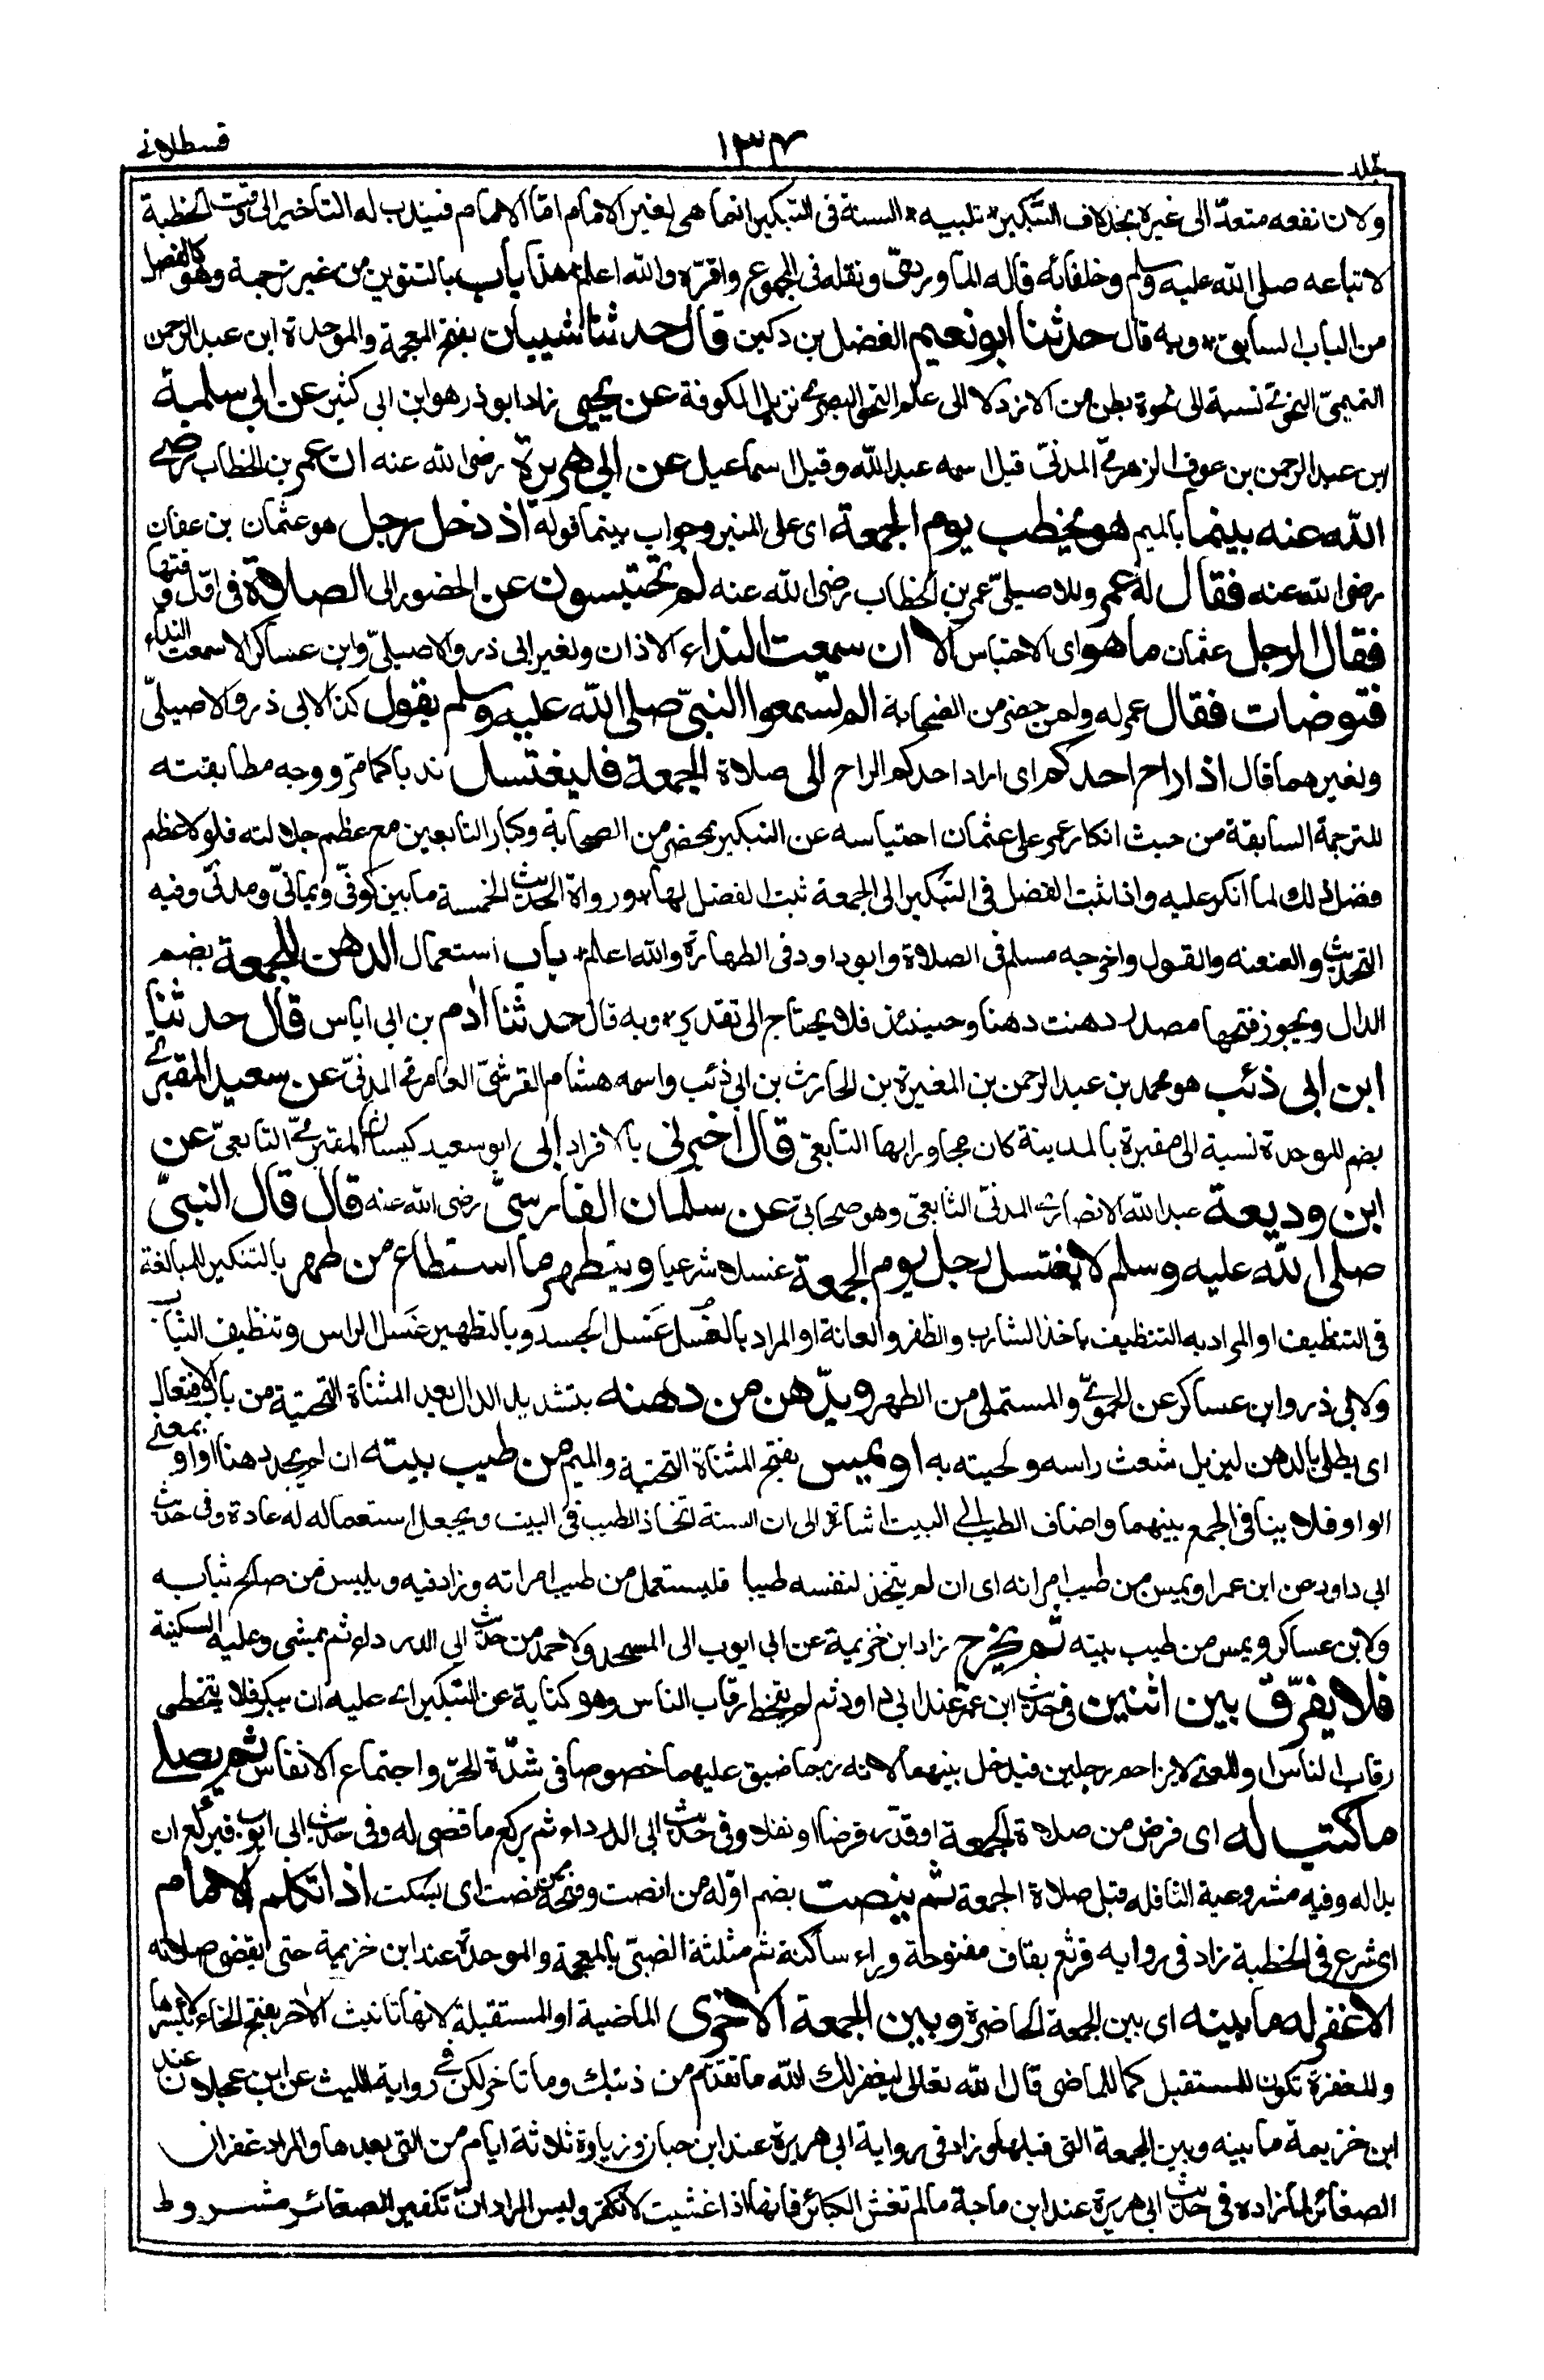 قسطلاني
١٣٤
جلد
ولان نفعه متعدّ الى غيره بخلاف التبكير * تنبيه * السنة فى التبكير انما هى لغير الامام امّا الامام فيندب له التأخير الى وقت الخطبة
لاتباعه صلى الله عليه وسلم وخلفائه قاله الماوردىّ ونقله فى المجموع واقرّه والله اعلم * هذا باب بالتنوين من غير ترجمة وهو كالفصل
من الباب السابق * وبه قال حدثنا ابو نعيم الفضل بن دكين قال حدثنا شيبان بفتح المعجمة والموحدة ابن عبد الرحمن
التميمىّ النحوىّ نسبة الى نحوة بطن من الازد لا الى علم النحو البصرىّ نزيل الكوفة عن يحيى زاد ابو ذر هو ابن ابى كثير عن ابى سلمة
ابن عبد الرحمن بن عوف الزهرىّ المدنىّ قيل اسمه عبد الله وقيل اسماعيل عن ابى هريرة رضى الله عنه ان عمر بن الخطاب رضى
الله عنه بينما بالميم هو يخطب يوم الجمعة اى على المنبر وجواب بينما قوله اذ دخل رجل هو عثمان بن عفان
رضى الله عنه فقال له عمر وللاصيلىّ عمر بن الخطاب رضى الله عنه لم تحتبسون عن الحضور الى الصلاة فى اوّل وقتها
فقال الرجل عثمان ما هو اى الاحتباس الا ان سمعت النداء الاذان ولغير ابى ذر والاصيلىّ وابن عساكر الا سمعت النداء
فتوضات فقال عمر له ولمن حضر من الصحابة الم تسمعوا النبىّ صلى الله عليه وسلم يقول كذا لابى ذر والاصيلىّ
ولغيرهما قال اذا راح احدكم اى اراد احدكم الراح الى صلاة الجمعة فليغتسل ندبا كما مرّ ووجه مطابقته
للترجمة السابقة من حيث انكار عمر على عثمان احتباسه عن التبكير بمحضر من الصحابة وكبار التابعين مع عظم جلالته فلولا عظم
فضل ذلك لما انكر عليه واذا ثبت الفضل فى التبكير الى الجمعة ثبت الفضل لها * ورواة الحديث الخمسة ما بين كوفىّ ويمانىّ ومدنىّ وفيه
التحديث والعنعنه والقول واخرجه مسلم فى الصلاة وابو داود فى الطهارة والله اعلم * باب استعمال الدهن للجمعة بضم
الدال ويجوز فتحها مصدر دهنت دهنا وحينئذ فلا يحتاج الى تقدير * وبه قال حدثنا ادم بن ابى اياس قال حدثنا
ابن ابى ذئب هو محمد بن عبد الرحمن بن المغيرة بن الحارث بن ابى ذئب واسمه هشام القرشىّ العامرىّ المدنىّ عن سعيد المقبرىّ
بضم الموحدة نسبة الى مقبرة بالمدينة كان مجاورا بها التابعىّ قال اخبرنى بالافراد ابى ابو سعيد كيسان المقبرىّ التابعىّ عن
ابن وديعة عبد الله الانصارىّ المدنىّ التابعىّ وهو صحابىّ عن سلمان الفارسىّ رضى الله عنه قال قال النبىّ
صلى الله عليه وسلم لا يغتسل رجل يوم الجمعة غسلا شرعيا ويتطهر ما استطاع من طهر بالتنكير للمبالغة
فى التنظيف او المراد به التنظيف باخذ الشارب والظفر والعانة او المراد بالغسل غسل الجسد وبالتطهير غسل الراس وتنظيف الثياب
ولابى ذر وابن عساكر عن الحموىّ والمستملى من الطهر ويدّهن من دهنه بتشديد الدال بعد المثناة التحتية من باب الافتعال
اى يطلى بالدهن ليزيل شعث راسه ولحيته به او يمس بفتح المثناة التحتية والميم من طيب بيته ان لم يجد دهنا او او بمعنى
الواو فلا ينافى الجمع بينهما واضاف الطيب الى البيت اشارة الى ان السنة اتخاذ الطيب فى البيت ويجعل استعماله له عادة وفى حديث
ابى داود عن ابن عمر او يمس من طيب امراته اى ان لم يتخذ لنفسه طيبا فليستعمل من طيب امراته وزاد فيه ويلبس من صالح ثيابه
ولابن عساكر ويمس من طيب بيته ثم يخرج زاد ابن خزيمة عن ابى ايوب الى المسجد ولاحمد من حديث ابى الدرداء ثم يمشى وعليه السكينة
فلا يفرّق بين اثنين فى حديث ابن عمر عند ابى داود ثم لم يتخط رقاب الناس وهو كناية عن التبكير اى عليه ان يبكر فلا يتخطى
رقاب الناس او المعنى لا يزاحم رجلين فيدخل بينهما لانه ربما ضيق عليهما خصوصا فى شدّة الحرّ واجتماع الانفاس ثم يصلى
ما كتب له اى فرض من صلاة الجمعة او قدّر فرضا او نفلا وفى حديث ابى الدرداء ثم يركع ما قضى له وفى حديث ابى ايوب فيركع ان
بدا له وفيه مشروعية النافله قبل صلاة الجمعة ثم ينصت بضم اوّله من انصت وفتحه من نصت اى يسكت اذا تكلم الامام
اى شرع فى الخطبة زاد فى رواية قرثع بقاف مفتوحة وراء ساكنة ثم مثلثة الضبّى بالمعجمة والموحدة عند ابن خزيمة حتى يقضى صلاته
الا غفر له ما بينه اى بين الجمعة الحاضرة وبين الجمعة الاخرى الماضية او المستقبلة لانها تانيث الاخر بفتح الخاء لا بكسرها
والمغفرة تكون للمستقبل كما للماضى قال الله تعالى ليغفر لك الله ما تقدّم من ذنبك وما تاخر لكن فى رواية الليث عن ابن عجلان عند
ابن خزيمة ما بينه وبين الجمعة التى قبلها وزاد فى رواية ابى هريرة عند ابن حبان وزيادة ثلاثة ايام من التى بعدها والمراد غفران
الصغائر لما زاده فى حديث ابى هريرة عند ابن ماجة ما لم تغش الكبائر فانها اذا غشيت لا تكفر وليس المراد انّ تكفير الصغائر مشروط